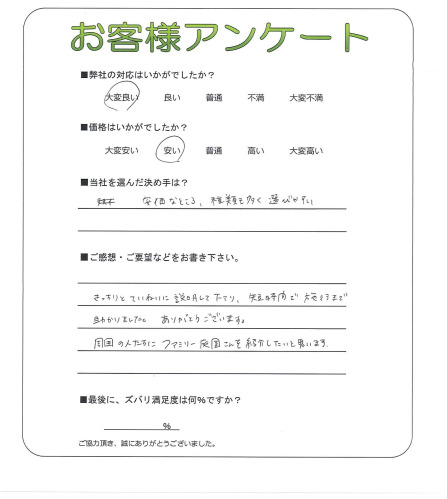 お客様アンケート
■弊社の対応はいかがでしたか？
大変良い 良い 普通 不満 大変不満
■価格はいかがでしたか？
大変安い 安い 普通 高い 大変高い
■当社を選んだ決め手は？
安価なところ、種類も多く選びやすい
■ご感想・ご要望などをお書き下さい。
きっちりとていねいに説明して下さり、短時間で施工まで
助かりました。ありがとうございます。
周囲の人たちにファミリー庭園さんを紹介したいと思います
■最後に、ズバリ満足度は何%ですか？
%
ご協力頂き、誠にありがとうございました。